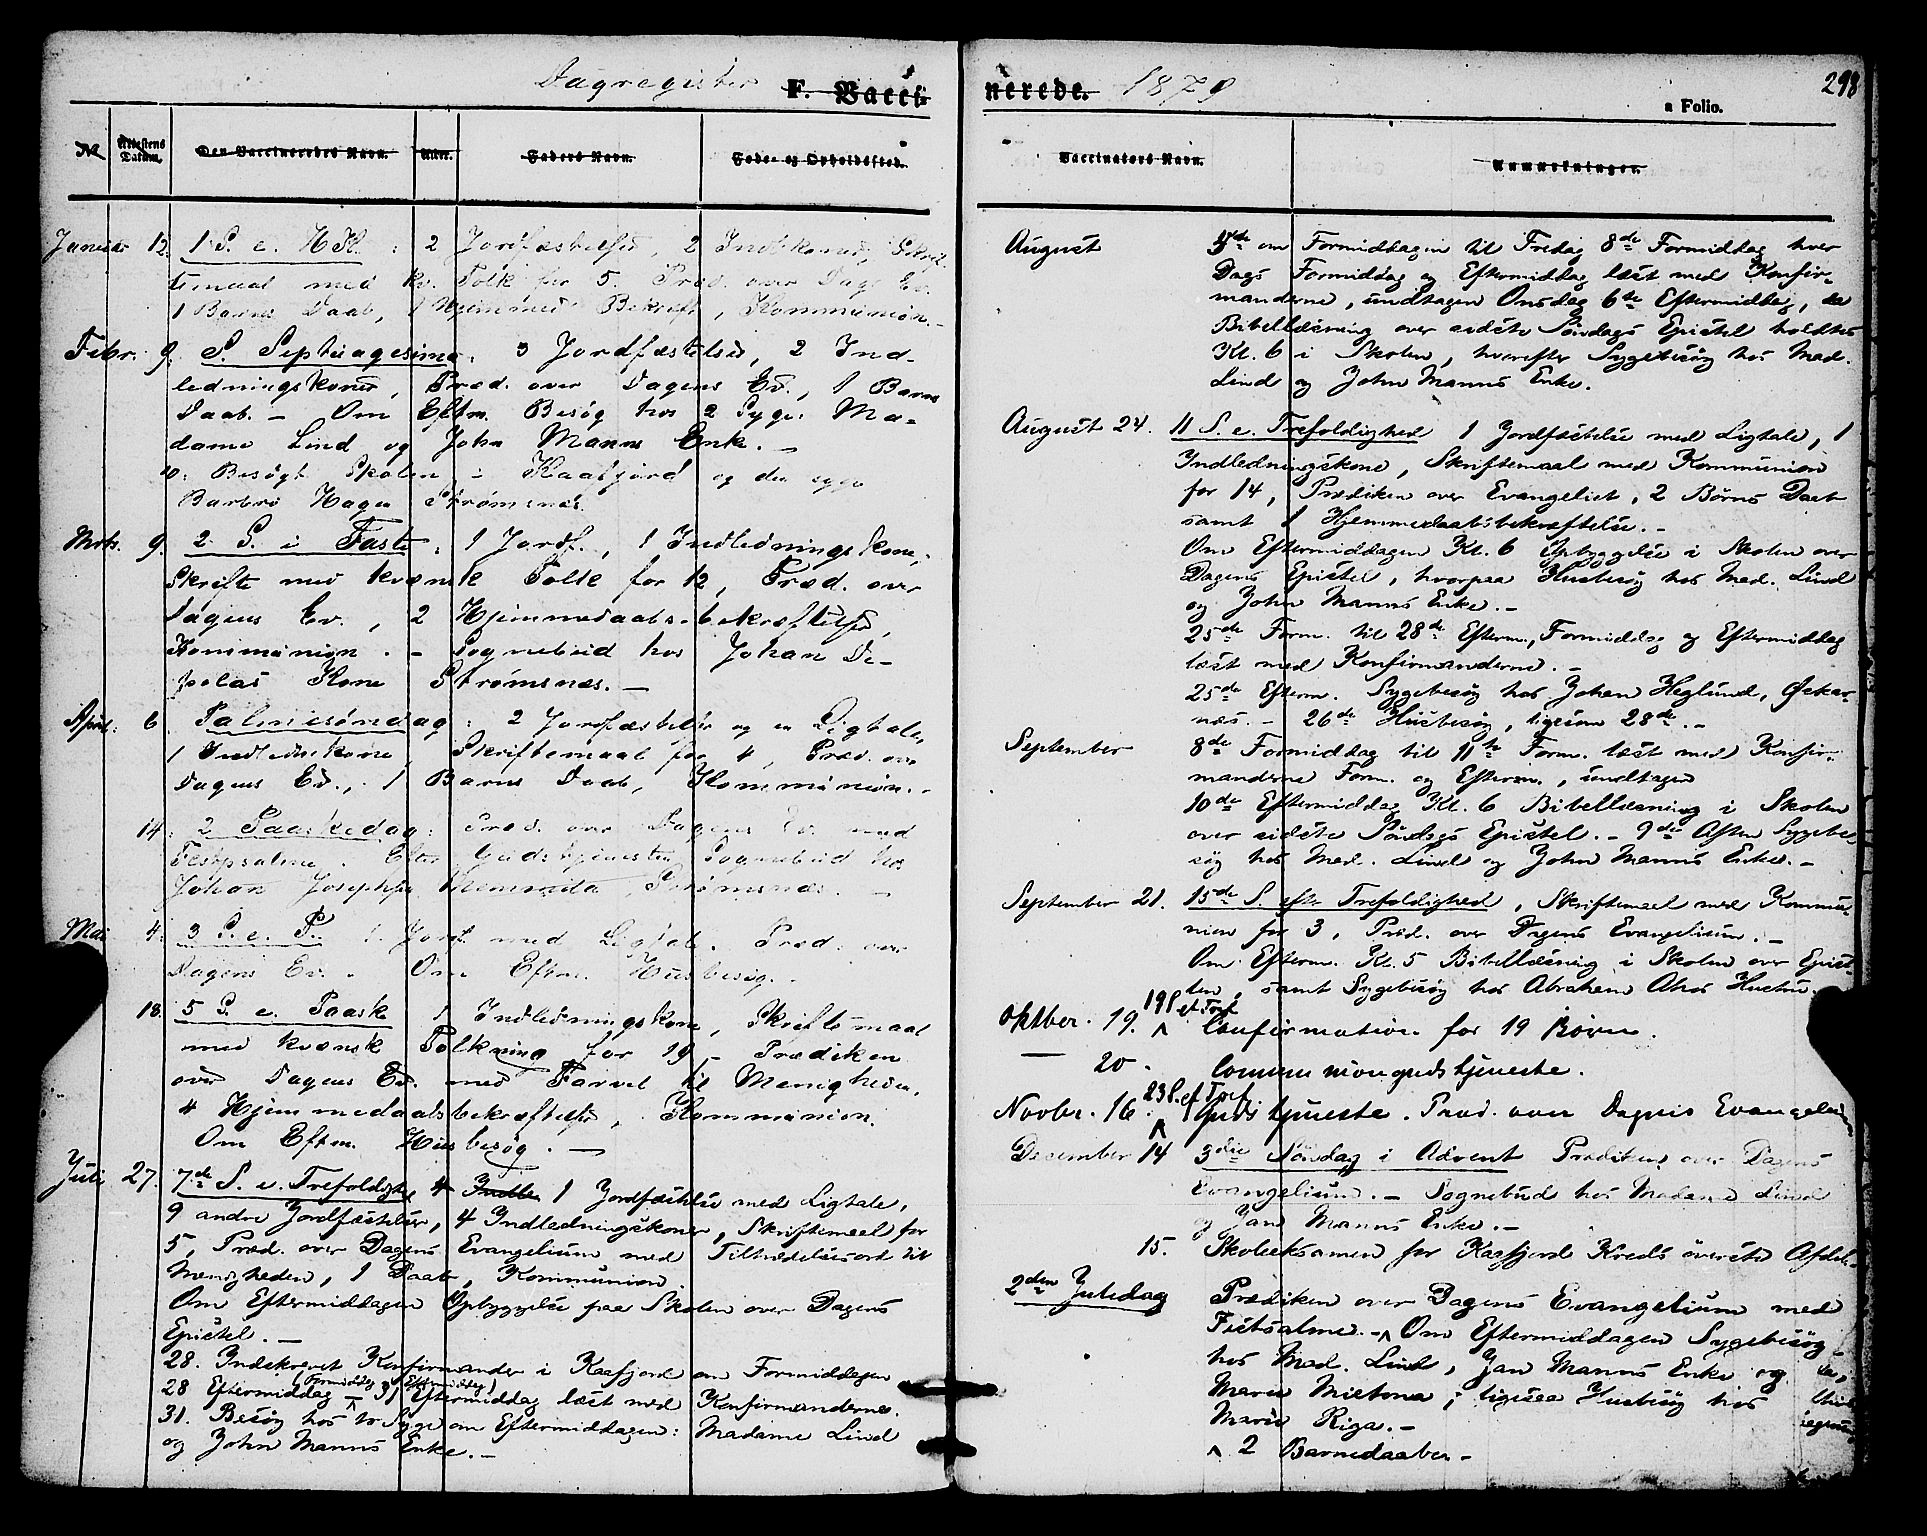 Dagregister F. Vacci
No
Attestens Datum.
Den Vaccineerdes Navn.
Alder.
Faders Navn.
Føde- og Opholdssted.
Januar 12. 1 S. e. H3K.: 2 Jordfæstelser, 2 Indl.koner, Skrif-
temaal med kv. Tolk for 5. Præd. over Dags Ev.
1 Barns Daab, 1 Hjemmed. Bekræft., Kommunion.-
Febr. 9. S. Septuagesima: 3 Jordfæstelser, 2 Ind-
ledningskoner, Præd. over Dagens Ev., 1 Barns
Daab. - Om Eftm. Besøg hos 2 Syge: Ma-
dame Lind og John Manns Enk. -
10: Besøgt Skolen i Kaafjord og den syge
Barbro Hagen Strømsnæs.
Mrts. 9. 2 S. i Faste: 1 Jordf., 1 Indledningskone,
Skrifte med kvænsk Tolk for 12, Præd. over
Dagens Ev., 2 Hjemmedaabsbekræftelser,
Kommunion. - Sognebud hos Johan De-
polas Kone Strømsnæs. -
April: 6. Palmesøndag: 2 Jordfæstelser og en Ligtale,
1 Indledn.kone, Skriftemaal for 4, Præd. over
Dagens Ev., 1 Barns Daab, Kommunion. -
14: 2 Paaskedag: Præd. over Dagens Ev. med
Festpsalme. Efter Gudstjenesten Sognebud hos
Johan Josephsen Strømsnæs. -
Mai 4: 3 S. e. P. 1 Jordf. med Ligtale. Præd. over
Dagens Ev. - Om Eftm. Husbesøg. -
18. 5 S. e. Paaske 1 Indledningskone, Skriftemaal
med kvænsk Tolkning for 19 - Prædiken
over Dagens Ev. med Farvel til Menigheden,
4 Hjemmedaabsbekræftelser, Kommunion.
Om Eftm. Husbesøg. -
Juli 27. 7de S. e. Trefoldigh. 4 Indled 1 Jordfæstelse med Ligtale,
9 andre Jordfæstelser, 4 Indledningskoner, Skriftemaal for
5, Præd. over Dagens Evangelium med Tiltrædelsesord til
Menigheden, 1 Daab, Kommunion.
Om Eftermiddagen Opbyggelse paa Skolen over Dagens
Epistel. -
28. Indskrevet Konfirmander i Kaafjord om Formiddagen
(Formiddag og Eftermiddag)
28 Eftermiddag - 31 Eftermiddag læst med Konfirmanderne.
31. Besøg hos to Syge om Eftermiddagen: Madame Lind
og John Manns Enke. -
nerede. 1879
a Folio.
298
Vaccinators Navn.
Anmærkninger.
August 5de om Formiddagen til Fredag 8de Formiddag hver
Dags Formiddag og Eftermiddag læst med Konfir-
manderne, undtagen Onsdag 6te Eftermiddag, da
Bibellæsning over sidste Søndags Epistel holdtes
Kl. 6 i Skolen, hvorefter Sygebesøg hos Mad.
Lind og John Manns Enke.
August 24. 11 S. e. Trefoldighed 1 Jordfæstelse med Ligtale, 1
Indledningskone, Skriftemaal med Kommunion
for 14, Prædiken over Evangeliet, 2 Børns Daab
samt 1 Hjemmedaabsbekræftelse. -
Om Eftermiddagen Kl. 6 Opbyggelse i Skolen over
Dagens Epistel, hvorpaa Husbesøg hos Mad. Lind
og John Manns Enke. -
25de Form. til 28de Efterm., Formiddag og Eftermiddag
læst med Konfirmanderne. -
25de Efterm. Sygebesøg hos Johan Heglund, Øskar-
næs. - 26de Husbesøg, ligesom 28de. -
September 8de Formiddag til 11te Form. læst med Konfir-
manderne Form. og Efterm., undtagen
10de Eftermiddag Kl. 6 Bibellæsning i Skolen
over sidste Søndags Epistel. - 9de Aften Sygebe-
søg hos Mad. Lind og John Manns Enke. -
September 21. 15de S. efter Trefoldighed, Skriftemaal med Kommu-
nion for 3, Præd. over Dagens Evangelium. -
Om Efterm. Kl. 5 Bibellæsning i Skolen over Epist-
len, samt Sygebesøg hos Abraham Ahos Hustru.
19 S. ef Tref
Oktber. 19. Confirmation for 19 Børn.
— 20. Communiongudstjeneste.
23 S. ef Tref.
Novbr. 16. Gudstjeneste. Præd. over Dagens Evangelium
December 14 3die Søndag i Advent Prædiken over Dagens
Evangelium. - Sognebud hos Madame Lind
og Jan Manns Enke. -
15. Skoleeksamen for Kaafjord Kreds øverste Afdel.
2den Juledag Prædiken over Dagens Evangelium med
Festsalme. - Om Eftermiddagen Sygebesøg
hos Mad. Lind, Jan Manns Enke og
Maria Mietona; ligesaa Husbesøg hos
Maria Riga. -
2 Barnedaaber -